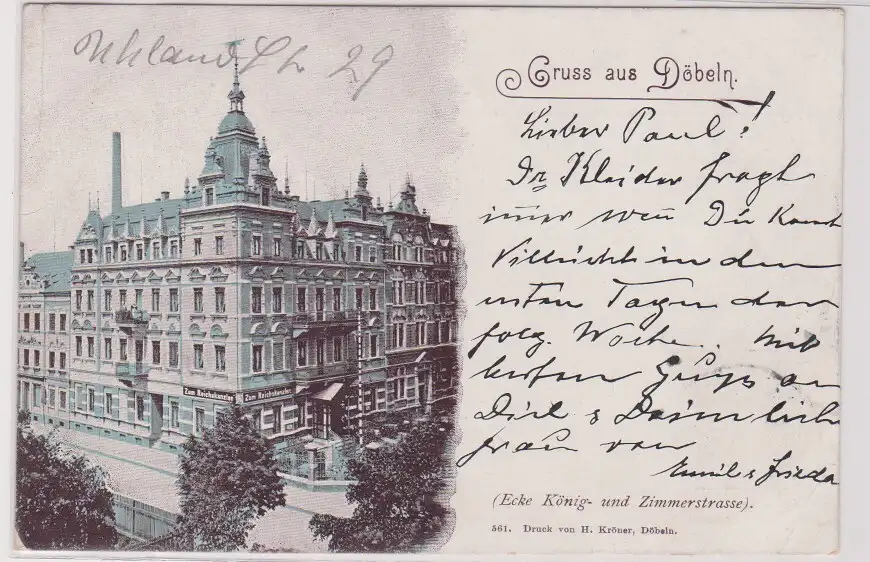 Uhland Str 29
Gruss aus Döbeln.
Lieber Paul!
Dr. Kleider fragt
immer wen Du kannst
Villeicht in den
ersten Tagen der
folg. Woche. Mit
besten Gruss an
Dich &
frau von
Emil & Frieda
Zum Reichskanzler Zum Reichskanzler
(Ecke König- und Zimmerstrasse).
561. Druck von H. Kröner, Döbeln.